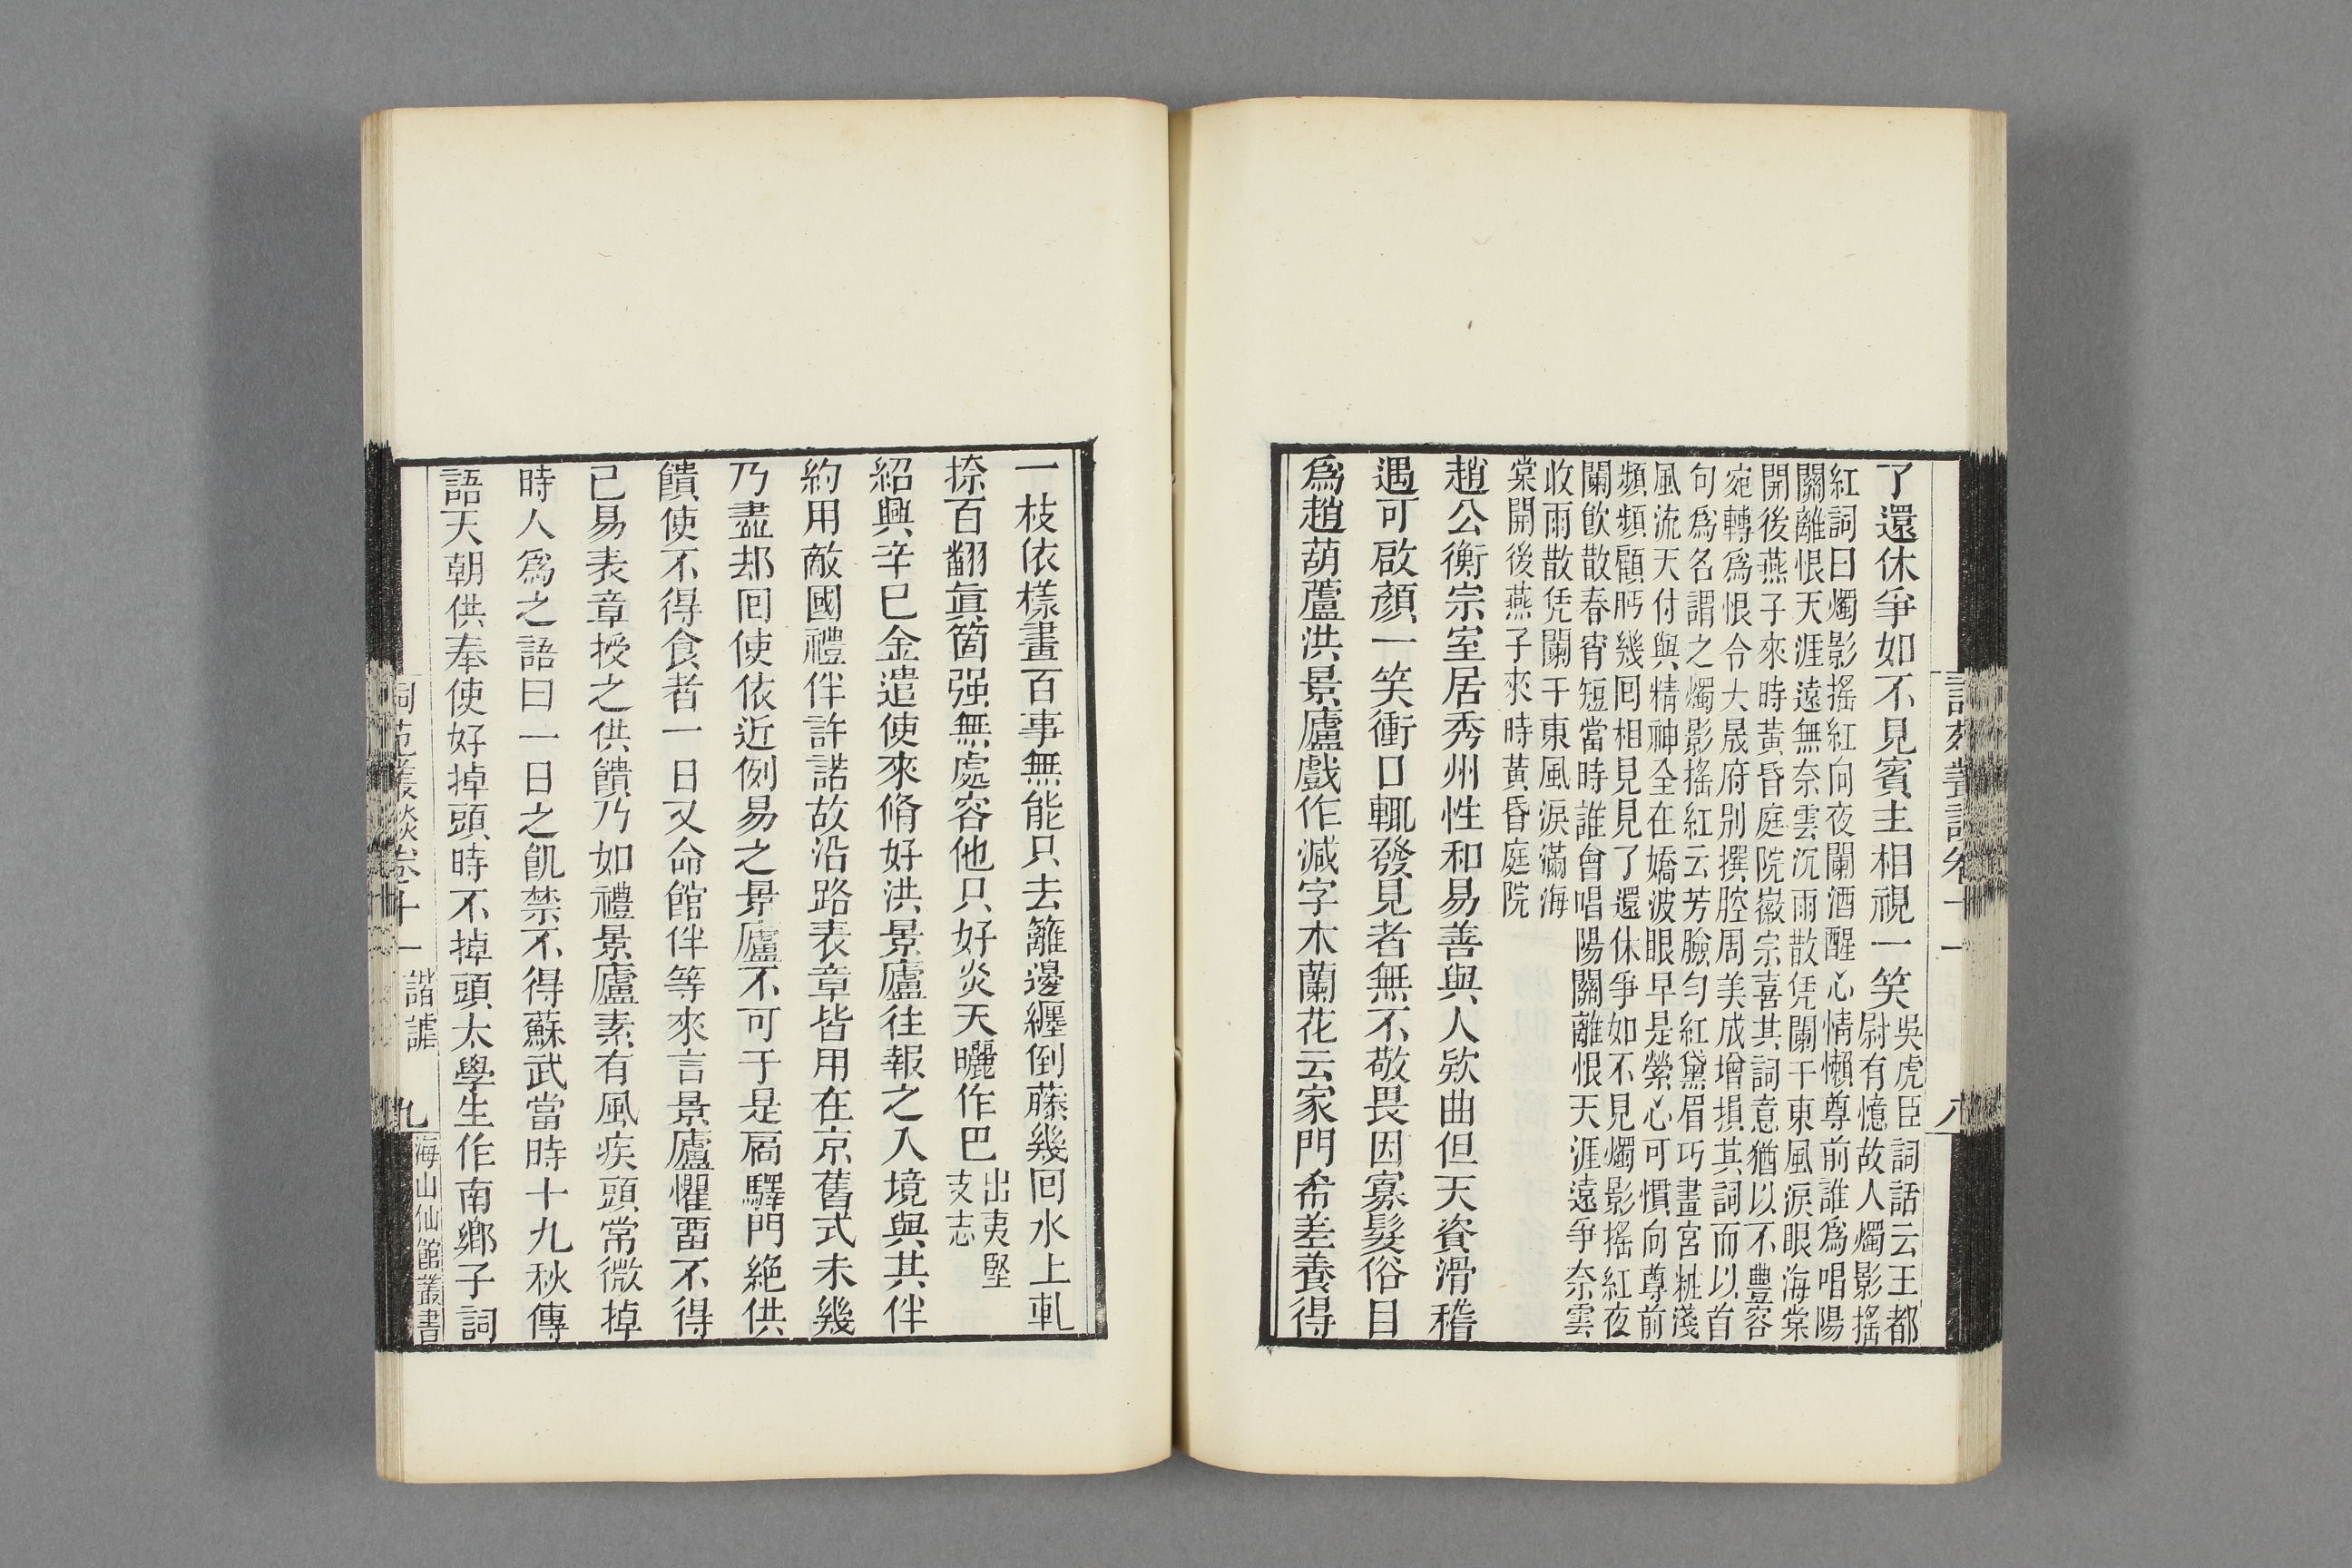 詞苑叢談卷十一　八
了還休爭如不見賓主相視一笑吳虎臣詞話云王都
尉有憶故人燭影搖
紅詞曰燭影搖紅向夜闌酒醒心情懶尊前誰爲唱陽
關離恨天涯遠無奈雲沉雨散凭闌干東風淚眼海棠
開後燕子來時黃昏庭院徽宗喜其詞意猶以不豐容
宛轉爲恨令大晟府別撰腔周美成增損其詞而以首
句爲名謂之燭影搖紅云芳臉勻紅黛眉巧畫宮粧淺
風流天付與精神全在嬌波眼早是縈心可慣向尊前
頻頻顧眄幾囘相見見了還休爭如不見燭影搖紅夜
闌飲散春宵短當時誰會唱陽關離恨天涯遠爭奈雲
收雨散凭闌干東風淚滿海
棠開後燕子來時黃昏庭院
趙公衡宗室居秀州性和易善與人欵曲但天資滑稽
遇可啟顏一笑衝口輒發見者無不敬畏因寡髮俗目
爲趙葫蘆洪景廬戲作減字木蘭花云家門希差養得
一枝依樣畫百事無能只去籬邊纏倒藤幾囘水上軋
捺百翻眞箇强無處容他只好炎天曬作巴出夷堅
支志
紹興辛巳金遣使來脩好洪景廬往報之入境與其伴
約用敵國禮伴許諾故沿路表章皆用在京舊式未幾
乃盡却囘使依近例易之景廬不可于是扃驛門絕供
饋使不得食者一日又命館伴等來言景廬懼畱不得
已易表章授之供饋乃如禮景廬素有風疾頭常微掉
時人爲之語曰一日之飢禁不得蘇武當時十九秋傳
語天朝供奉使好掉頭時不掉頭太學生作南鄉子詞
詞苑叢談卷十一　諧謔　九　海山仙館叢書